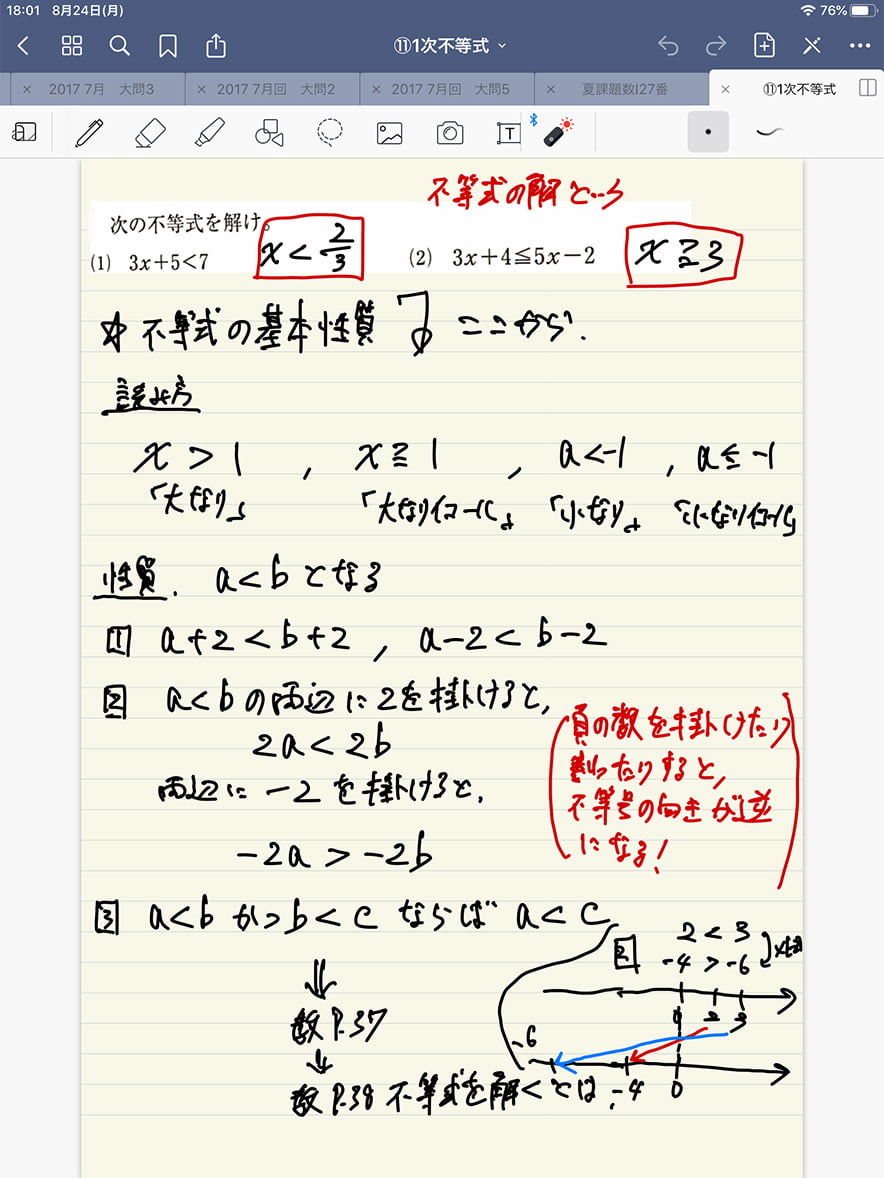 18:01 8月24日(月) 76%
⑪1次不等式
2017 7月 大問3
2017 7月回 大問2
2017 7月回 大問5
夏課題数I27番
⑪1次不等式
T
不等式の解という
次の不等式を解け。
(1) 3x+5<7 x<2/3 (2) 3x+4≦5x−2 x≧3
☆ 不等式の基本性質 ここから.
読み方
x>1 , x≧1 , a<-1 , a≦-1
「大なり」 「大なりイコール」 「小なり」 「小なりイコール」
性質. a<bとなる
1 a+2<b+2 , a-2<b-2
2 a<bの両辺に2を掛けると,
2a<2b
両辺に-2を掛けると,
-2a>-2b
負の数を掛けたり
割ったりすると,
不等号の向きが逆
になる!
3 a<bかつb<cならばa<c
⇓
数P.37
↓
数P.38 不等式を解くとは,
2 2<3
-4>-6
0 2 3
-6 -4 0